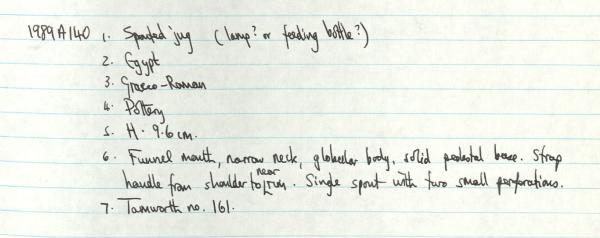 1989A140 1. Spouted jug (lamp? or feeding bottle?)
2. Egypt
3. Graeco-Roman
4. Pottery
5. H. 9.6cm.
6. Funnel mouth, narrow neck, globular body, solid pedestal base. Strap
handle from shoulder to near rim. Single spout with two small perforations.
7. Tamworth no. 161.